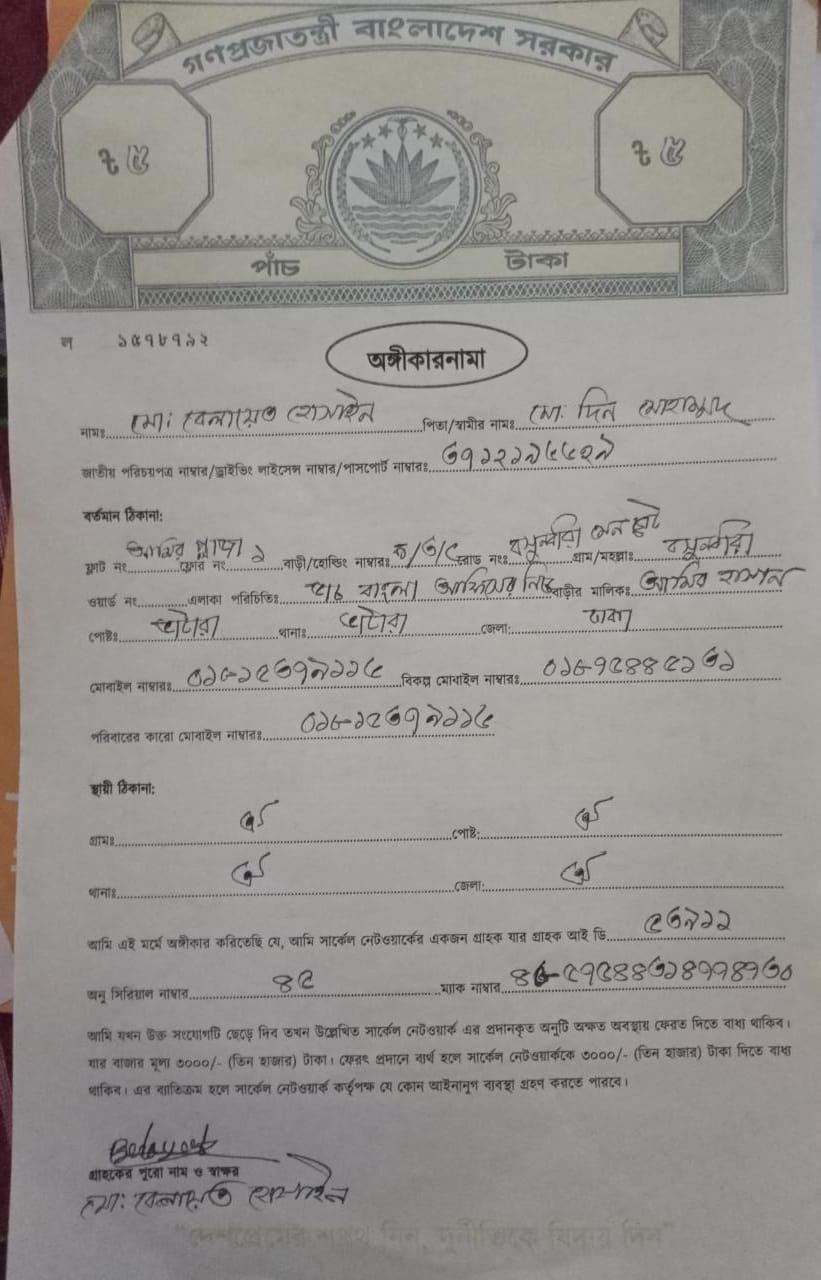 গণপ্রজাতন্ত্রী বাংলাদেশ সরকার
৳ ৫ ৳ ৫
পাঁচ টাকা
ন ১৫৭৮৭৯২
অঙ্গীকারনামা
নামঃ মো: বেলায়েত হোসাইন পিতা/স্বামীর নামঃ মো: দিন মোহাম্মদ
জাতীয় পরিচয়পত্র নাম্বার/ড্রাইভিং লাইসেন্স নাম্বার/পাসপোর্ট নাম্বারঃ
বর্তমান ঠিকানা:
ফ্লাট নং আমির প্লাজা ফ্লোর নং ১ বাড়ী/হোল্ডিং নাম্বারঃ রোড নংঃ বসুন্ধরা মেন গ্রাম/মহল্লাঃ বসুন্ধরা
ওয়ার্ড নং এলাকা পরিচিতিঃ ডাচ বাংলা অফিসের নিচে বাড়ীর মালিকঃ আমির
পোষ্টঃ ভাটারা থানাঃ ভাটারা জেলা: ঢাকা
মোবাইল নাম্বারঃ বিকল্প মোবাইল নাম্বারঃ
পরিবারের কারো মোবাইল নাম্বারঃ
স্থায়ী ঠিকানা:
গ্রামঃ ঐ পোষ্ট: ঐ
থানাঃ ঐ জেলা: ঐ
আমি এই মর্মে অঙ্গীকার করিতেছি যে, আমি সার্কেল নেটওয়ার্কের একজন গ্রাহক যার গ্রাহক আই ডি
অনু সিরিয়াল নাম্বার ম্যাক নাম্বার
আমি যখন উক্ত সংযোগটি ছেড়ে দিব তখন উল্লেখিত সার্কেল নেটওয়ার্ক এর প্রদানকৃত অনুটি অক্ষত অবস্থায় ফেরত দিতে বাধ্য থাকিব।
যার বাজার মূল্য ৩০০০/- (তিন হাজার) টাকা। ফেরৎ প্রদানে ব্যর্থ হলে সার্কেল নেটওয়ার্ককে ৩০০০/- (তিন হাজার) টাকা দিতে বাধ্য
থাকিব। এর ব্যতিক্রম হলে সার্কেল নেটওয়ার্ক কর্তৃপক্ষ যে কোন আইনানুগ ব্যবস্থা গ্রহণ করতে পারবে।
Belayet
গ্রাহকের পুরো নাম ও স্বাক্ষর
মো: বেলায়েত হোসাইন
"দেশপ্রেমের শপথ নিন, দুর্নীতিকে বিদায় দিন"